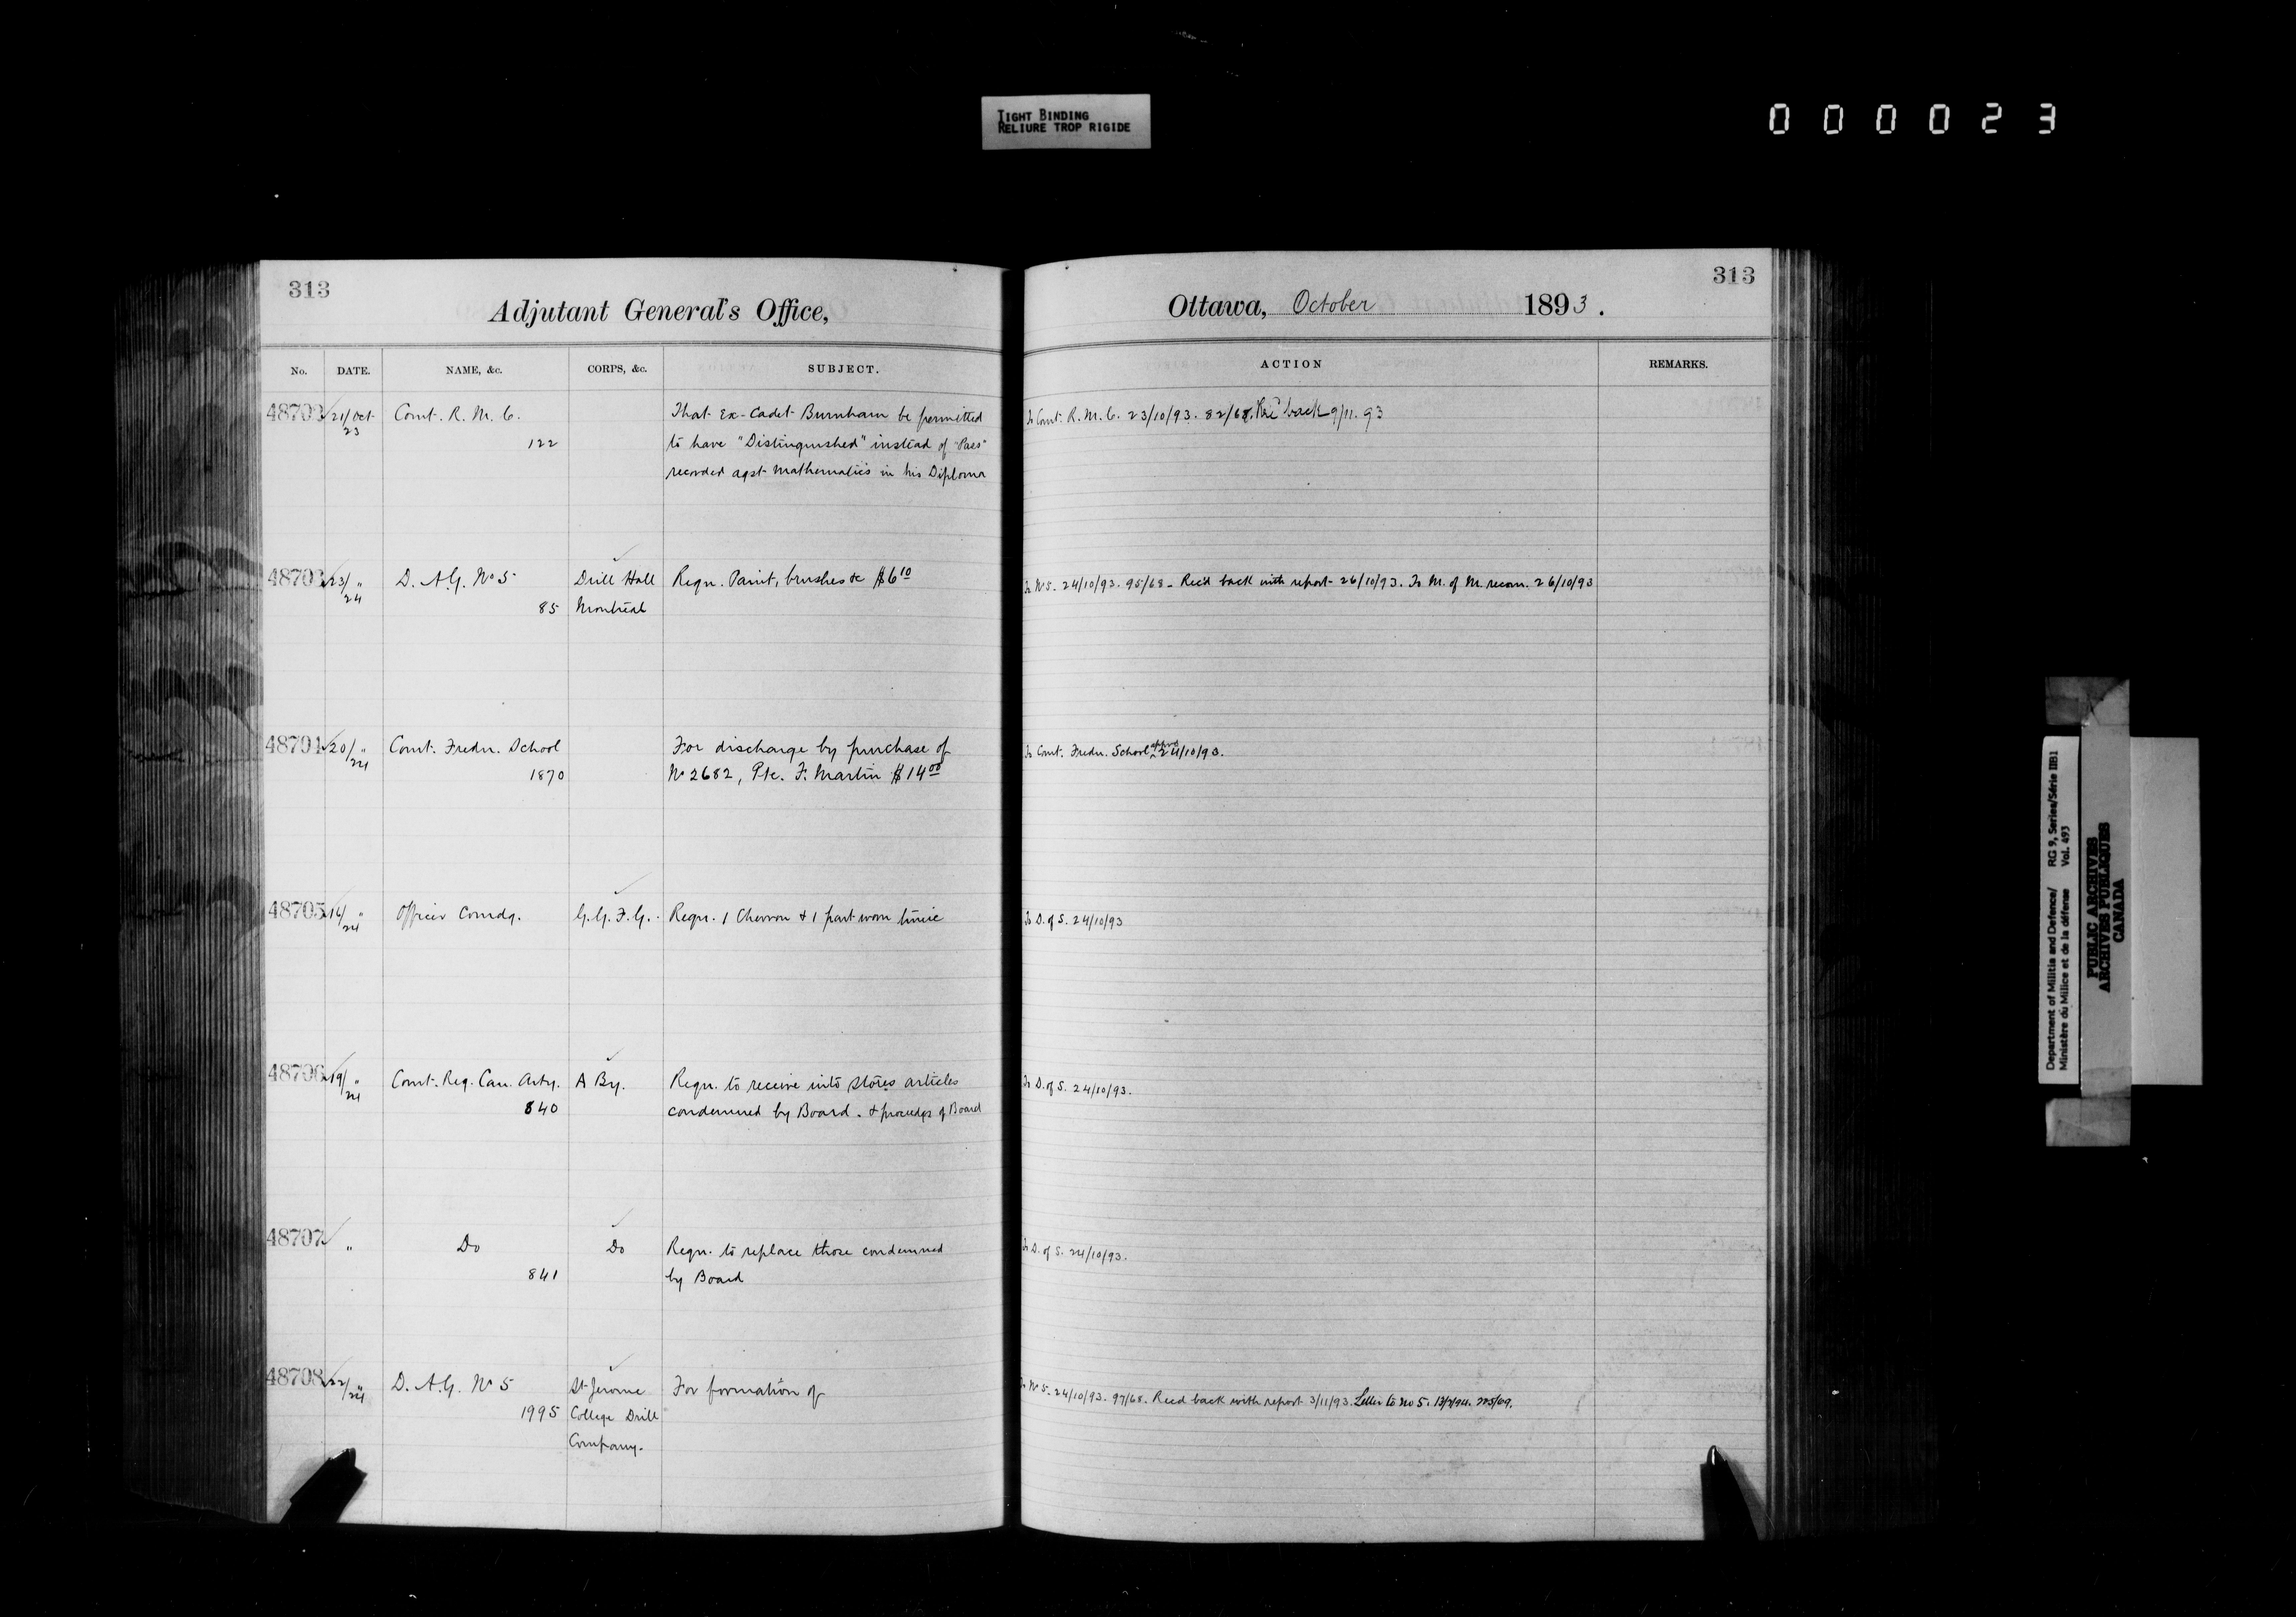 TIGHT BINDING
RELIURE TROP RIGIDE
000023
313
Adjutant General's Office,
No. DATE. NAME, &c. CORPS, &c. SUBJECT.
48702 21/Oct 23 Comt. R. M. C. That Ex-Cadet Burnham be permitted
122 to have "Distinguished" instead of "Pass"
recorded agst Mathematics in his Diploma
48703 23/ " 24 D. A. G. No 5 Drill Hall Reqn. Paint, brushes &c $6 10
85 Montreal
48704 20/ " 24 Comt. Fredn. School For discharge by purchase of
1870 No 2682, Pte. F. Martin $14 00
48705 16/ " 24 Officer Comdg. G. G. F. G. Reqn. 1 Chevron & 1 part worn tunic
48706 19/ " 24 Comt. Reg. Can. Arty. A By. Reqn. to receive into stores articles
840 condemned by Board. & proceedgs of Board
48707 " Do Do Reqn. to replace those condemned
841 by Board
48708 22/ " 24 D. A. G. No 5 St Jerome For formation of
1995 College Drill
Company.
313
Ottawa, October 1893.
ACTION REMARKS.
To Comt. R. M. C. 23/10/93. 82/68. Rec back 9/11.93
To No 5. 24/10/93. 95/68 - Rec'd back with report 26/10/93. To M. of M. recom. 26/10/93
To Comt. Fredn. School appvd 24/10/93.
To D. of S. 24/10/93
To D. of S. 24/10/93.
To D. of S. 24/10/93.
To No 5. 24/10/93. 97/68. Recd back with report 3/11/93. Letter to No 5.
Department of Militia and Defence/ RG 9, Series/Série IIB1
Ministère du Milice et de la défense Vol. 493
PUBLIC ARCHIVES
ARCHIVES PUBLIQUES
CANADA